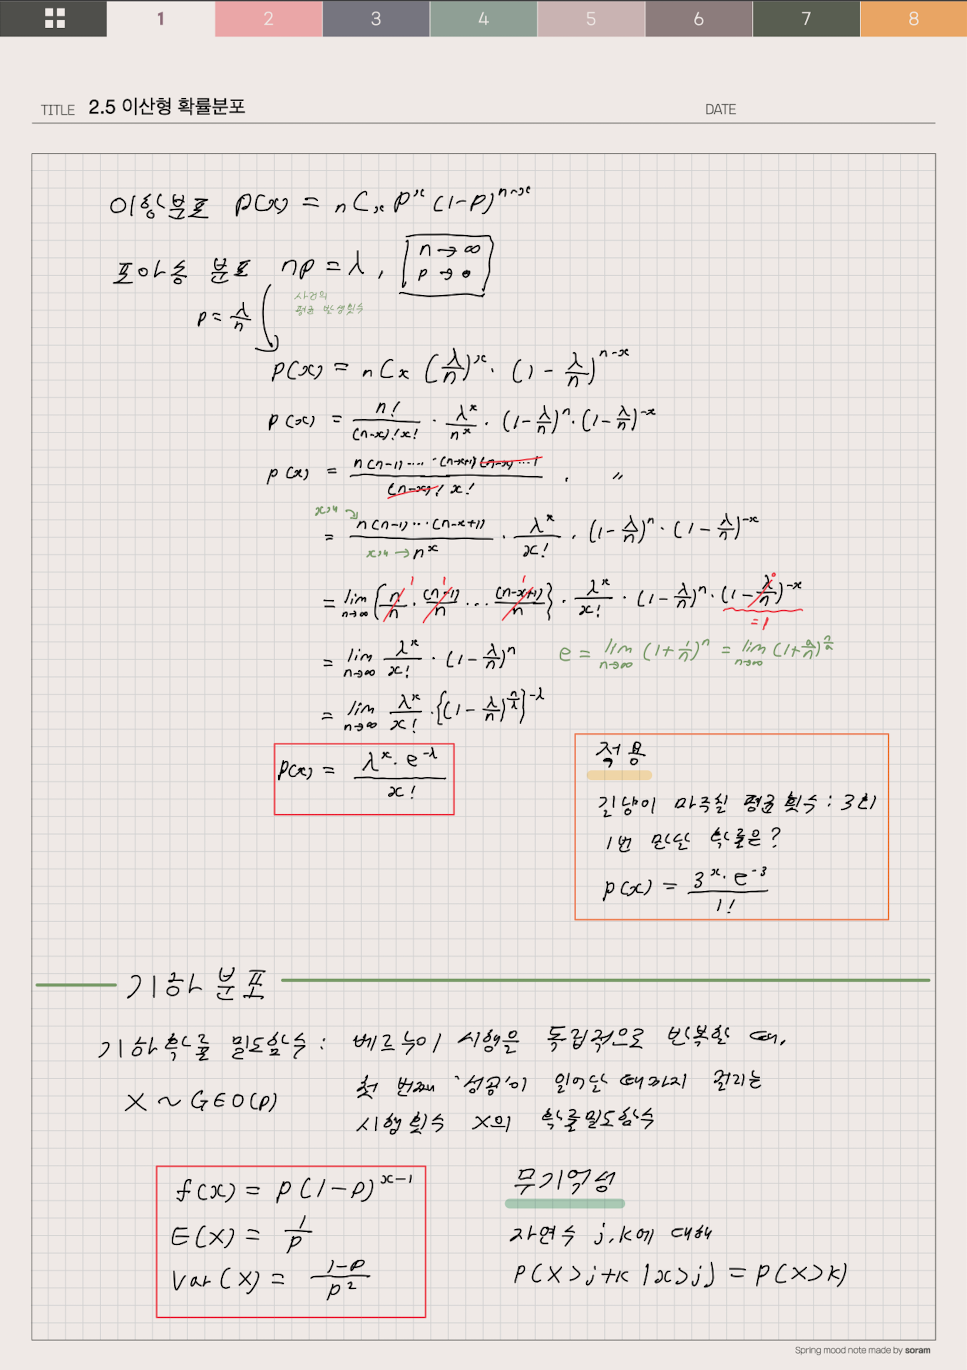 1 2 3 4 5 6 7 8
TITLE 2.5 이산형 확률분포 DATE
이항분포 P(x) = nCx P^x (1-P)^(n-x)
포아송 분포 np = λ, n→∞
p→0
사건의
평균 발생횟수
p = λ/n
P(x) = nCx (λ/n)^x · (1 - λ/n)^(n-x)
P(x) = n!/((n-x)!x!) · λ^x/n^x · (1-λ/n)^n · (1-λ/n)^-x
P(x) = n(n-1)····(n-x+1)(n-x)···1/((n-x)! x!) · 〃
x개→ n(n-1)···(n-x+1)/n^x · λ^x/x! · (1-λ/n)^n · (1-λ/n)^-x
x개→
= lim n→∞ {n/n · (n-1)/n ··· (n-x+1)/n} · λ^x/x! · (1-λ/n)^n · (1-λ/n)^-x
1 1 1 0
=1
= lim n→∞ λ^x/x! · (1-λ/n)^n
e = lim n→∞ (1+1/n)^n = lim n→∞ (1+a/n)^(n/a)
= lim n→∞ λ^x/x! · {(1-λ/n)^(n/λ)}^-λ
P(x) = λ^x · e^-λ / x!
적용
길냥이 마주칠 평균횟수 : 3회
1번 만날 확률은?
P(x) = 3^x · e^-3 / 1!
기하 분포
기하확률 밀도함수 : 베르누이 시행을 독립적으로 반복할 때,
첫 번째 '성공'이 일어날 때까지 걸리는
X ~ GEO(p)
시행횟수 X의 확률밀도함수
f(x) = p(1-p)^(x-1)
E(X) = 1/p
Var(X) = (1-p)/p^2
무기억성
자연수 j, k에 대해
P(X>j+k |x>j) = P(X>k)
Spring mood note made by soram